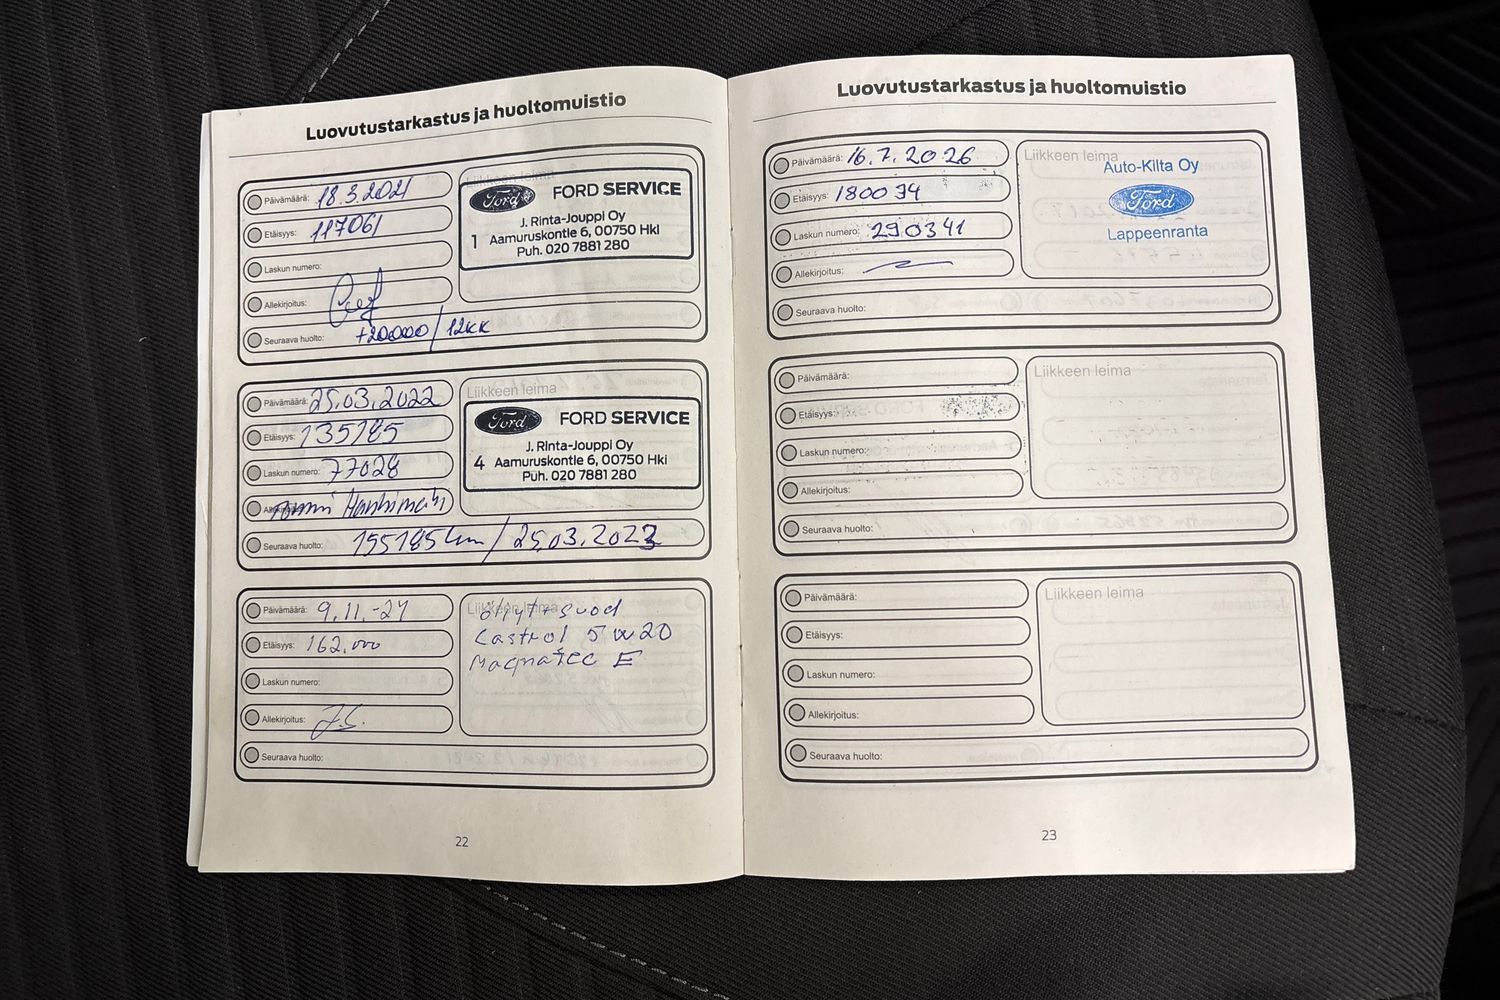 Luovutustarkastus ja huoltomuistio
Päivämäärä: 18.3.2021
Etäisyys: 117061
Laskun numero:
Allekirjoitus:
Seuraava huolto: +20000/12kk
Liikkeen leima
Ford FORD SERVICE
J. Rinta-Jouppi Oy
1 Aamuruskontie 6, 00750 Hki
Puh. 020 7881 280
Päivämäärä: 25.03.2022
Etäisyys: 135185
Laskun numero: 77028
Seuraava huolto: 155185 km / 25.03.2023
Liikkeen leima
Ford FORD SERVICE
J. Rinta-Jouppi Oy
4 Aamuruskontie 6, 00750 Hki
Puh. 020 7881 280
Päivämäärä: 9.11.-24
Etäisyys: 162.000
Laskun numero:
Allekirjoitus: J.S.
Seuraava huolto:
Liikkeen leima
öljyt+suod
Castrol 5w20
Magnatec E
22
Luovutustarkastus ja huoltomuistio
Päivämäärä: 16.7.2026
Etäisyys: 180034
Laskun numero: 290341
Allekirjoitus:
Seuraava huolto:
Liikkeen leima
Auto-Kilta Oy
Ford
Lappeenranta
Päivämäärä:
Etäisyys:
Laskun numero:
Allekirjoitus:
Seuraava huolto:
Liikkeen leima
Päivämäärä:
Etäisyys:
Laskun numero:
Allekirjoitus:
Seuraava huolto:
Liikkeen leima
23